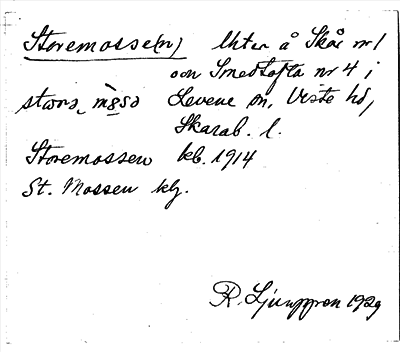 Storemosse(n) Uter å Skår nr 1
och Smedtofta nr 4 i
Levene sn, Viste hd,
Skarab. l.
Storemossen kb. 1914
St. Mossen kg.
R. Ljunggren 1929